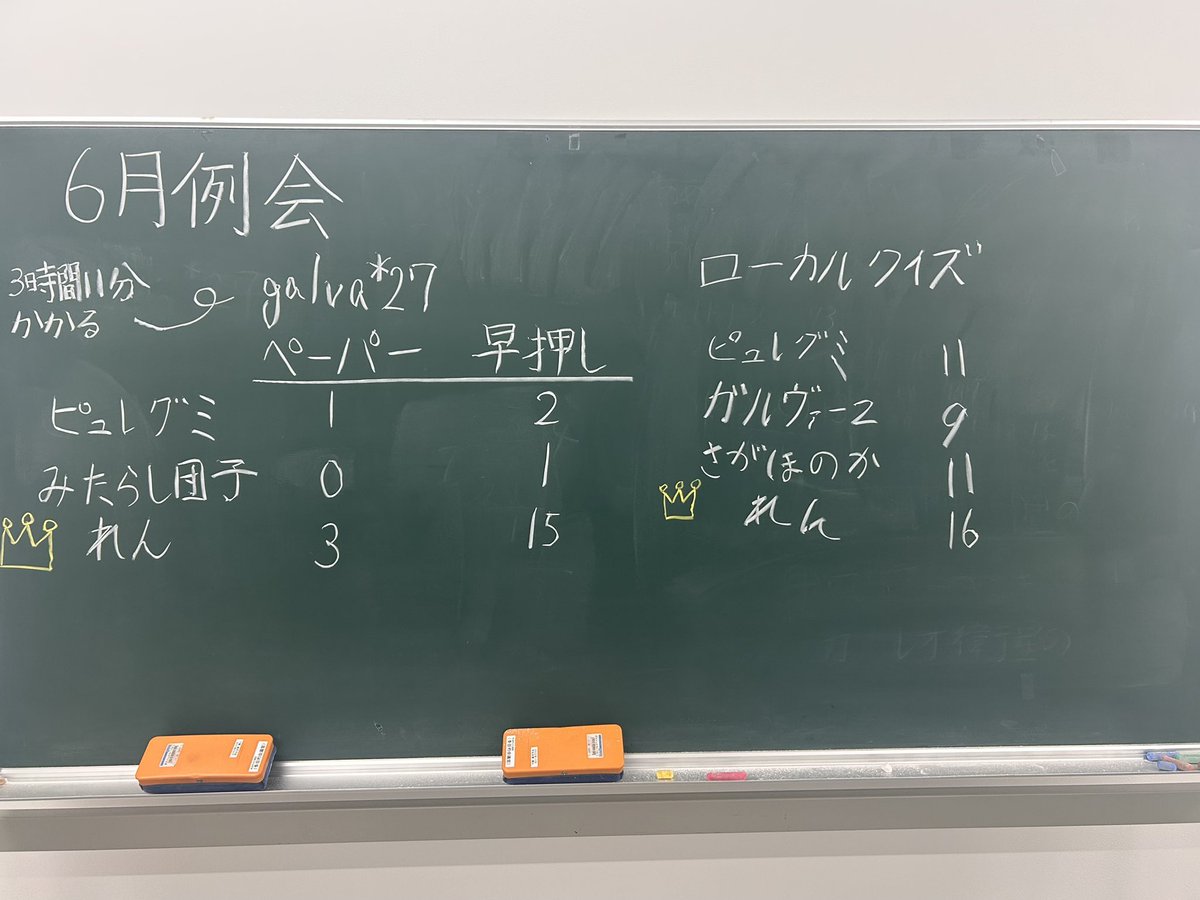 6月例会
3時間11分
かかる
galva*27
ペーパー 早押し
ピュレグミ 1 2
みたらし団子 0 1
れん 3 15
ローカルクイズ
ピュレグミ 11
ガルヴァース 9
さがほのか 11
れん 16